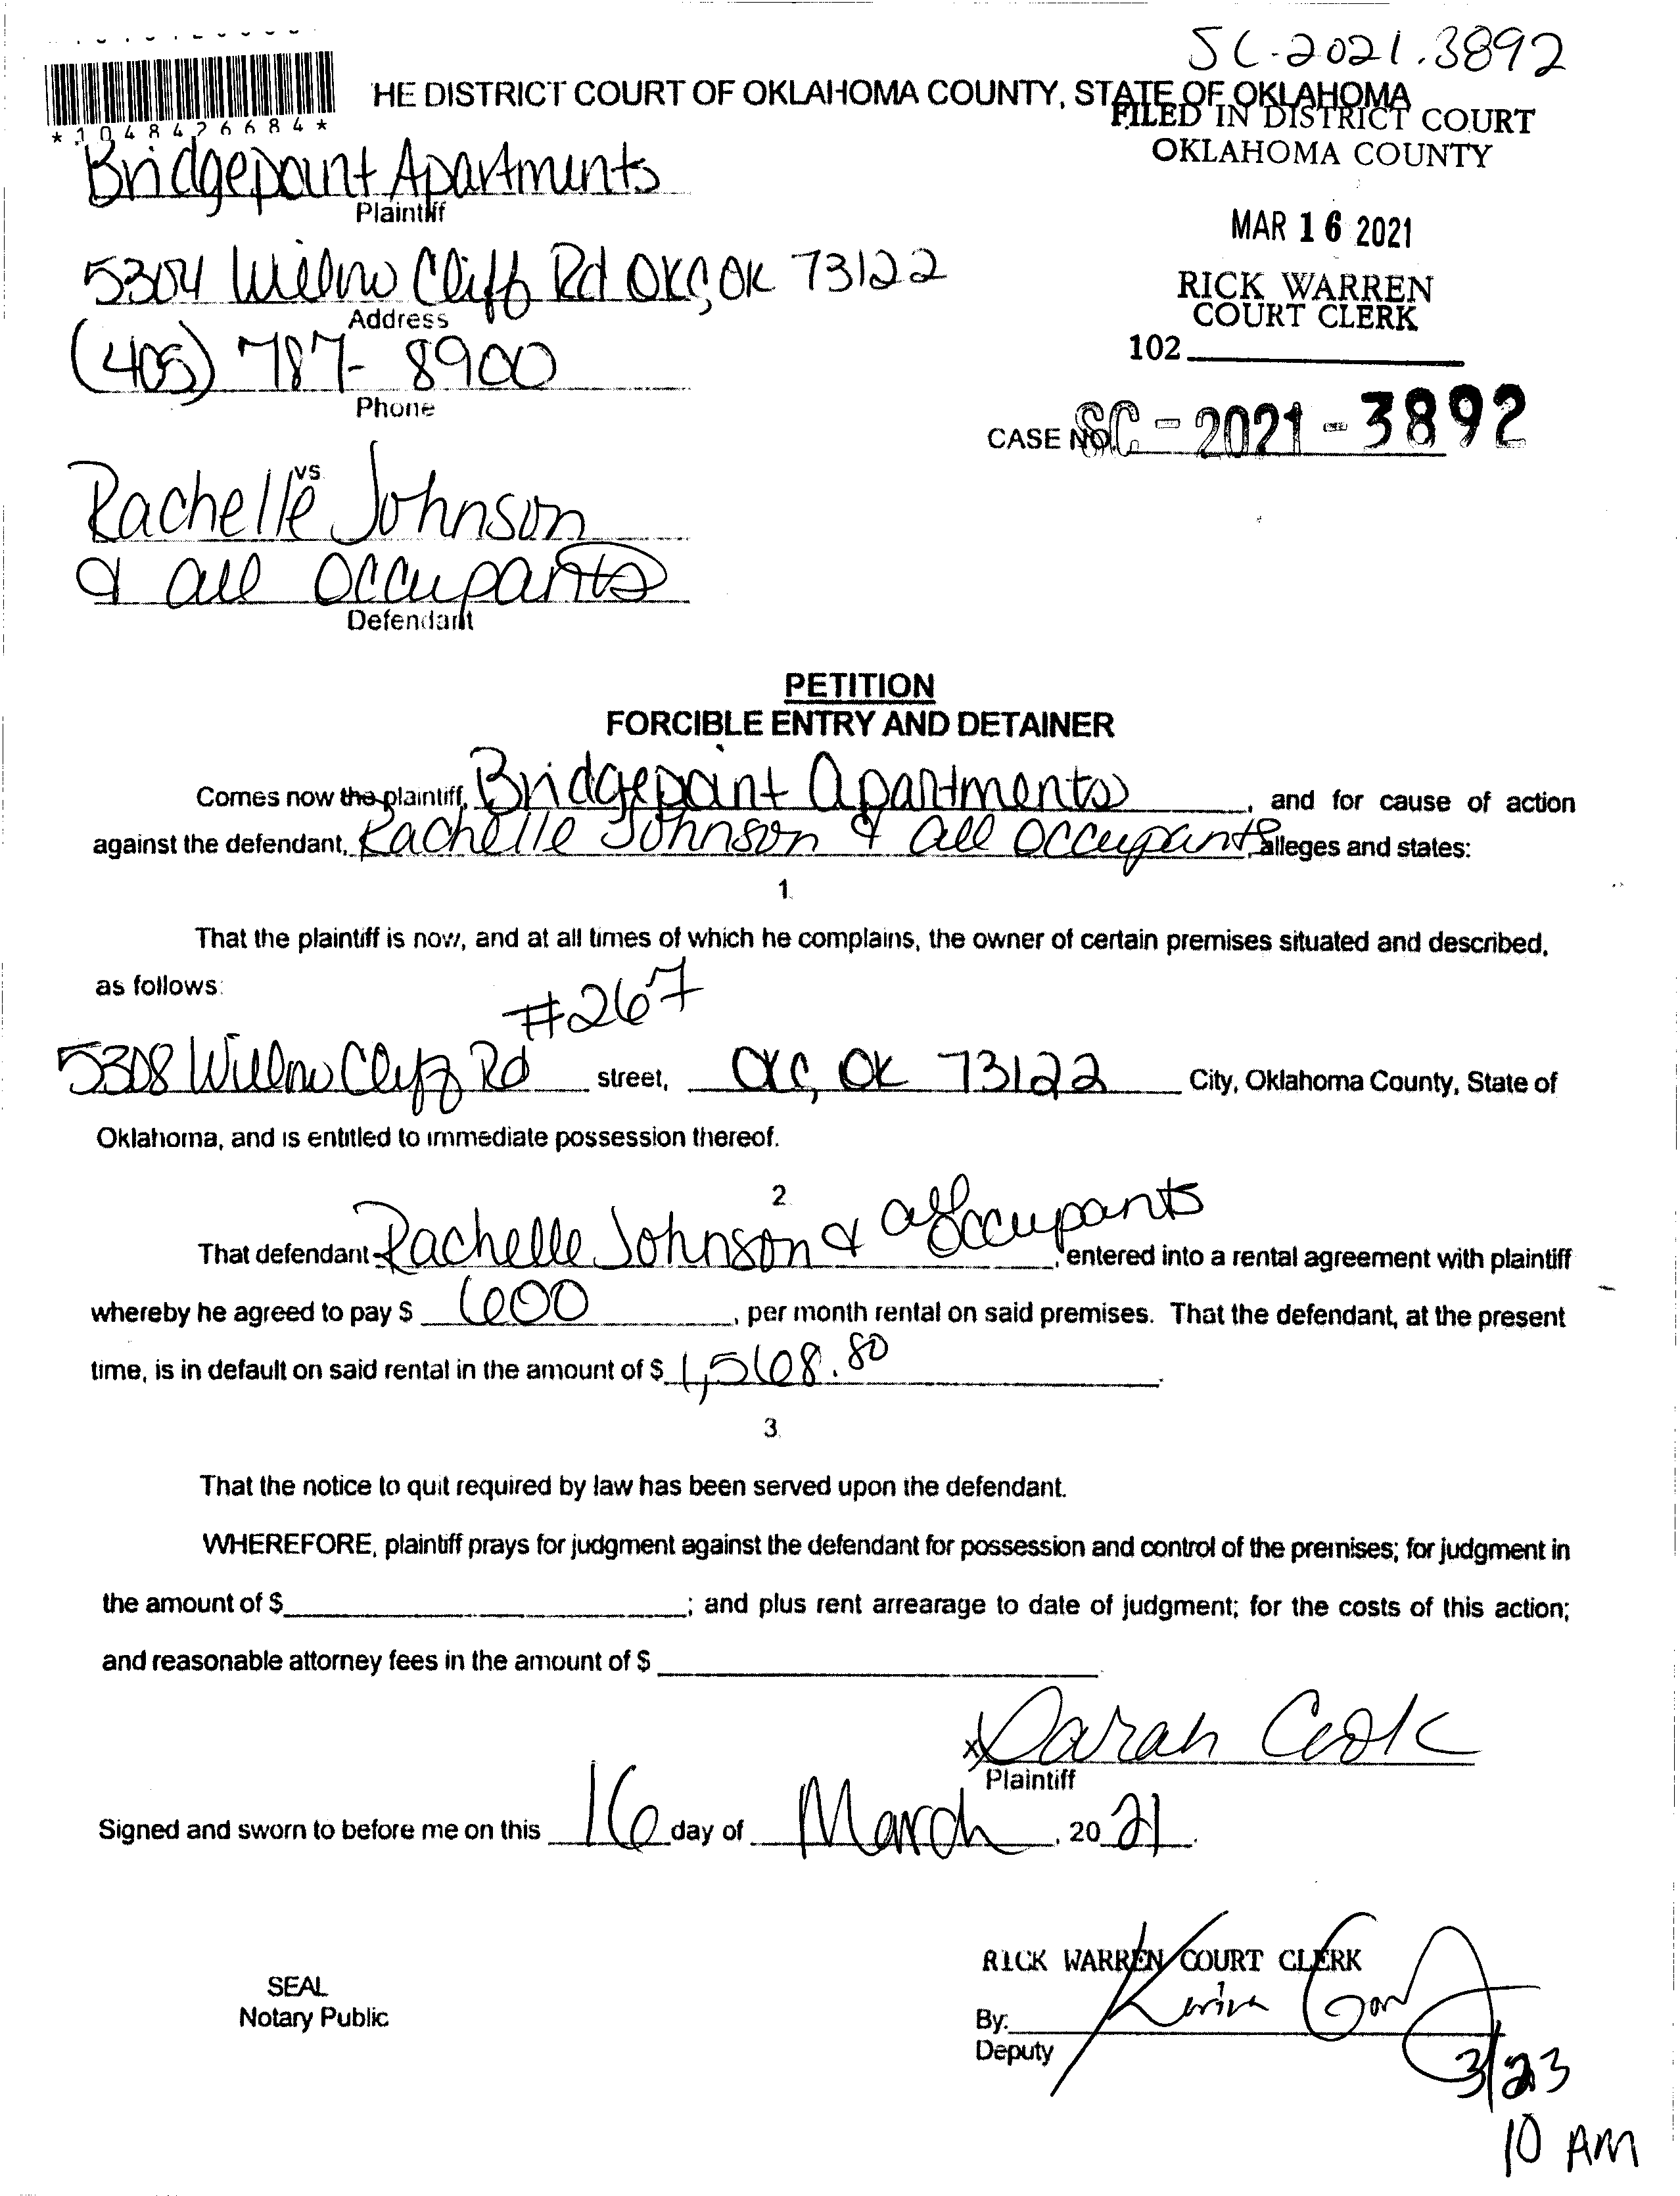 SC-2021.3892
HE DISTRICT COURT OF OKLAHOMA COUNTY, STATE OF OKLAHOMA
*1048426684*
FILED IN DISTRICT COURT
OKLAHOMA COUNTY
Bridgepoint Apartments
Plaintiff
MAR 16 2021
5304 Willow Cliff Rd OKC, OK 73122
Address
RICK WARREN
COURT CLERK
(405) 787-8900
Phone
102
CASE NO. SC-2021-3892
vs
Rachelle Johnson
& all Occupants
Defendant
PETITION
FORCIBLE ENTRY AND DETAINER
Comes now the plaintiff, Bridgepoint Apartments, and for cause of action
against the defendant, Rachelle Johnson & all occupants, alleges and states:
1.
That the plaintiff is now, and at all times of which he complains, the owner of certain premises situated and described,
as follows:
#267
5308 Willow Cliff Rd street, OKC, OK 73122 City, Oklahoma County, State of
Oklahoma, and is entitled to immediate possession thereof.
2
That defendant Rachelle Johnson & all Occupants, entered into a rental agreement with plaintiff
whereby he agreed to pay $ 600, per month rental on said premises. That the defendant, at the present
time, is in default on said rental in the amount of $ 1,568.80.
3.
That the notice to quit required by law has been served upon the defendant.
WHEREFORE, plaintiff prays for judgment against the defendant for possession and control of the premises; for judgment in
the amount of $ ; and plus rent arrearage to date of judgment; for the costs of this action;
and reasonable attorney fees in the amount of $
x Sarah Cook
Plaintiff
Signed and sworn to before me on this 16 day of March, 20 21.
RICK WARREN COURT CLERK
SEAL
Notary Public
By:
Deputy
3/23
10 AM